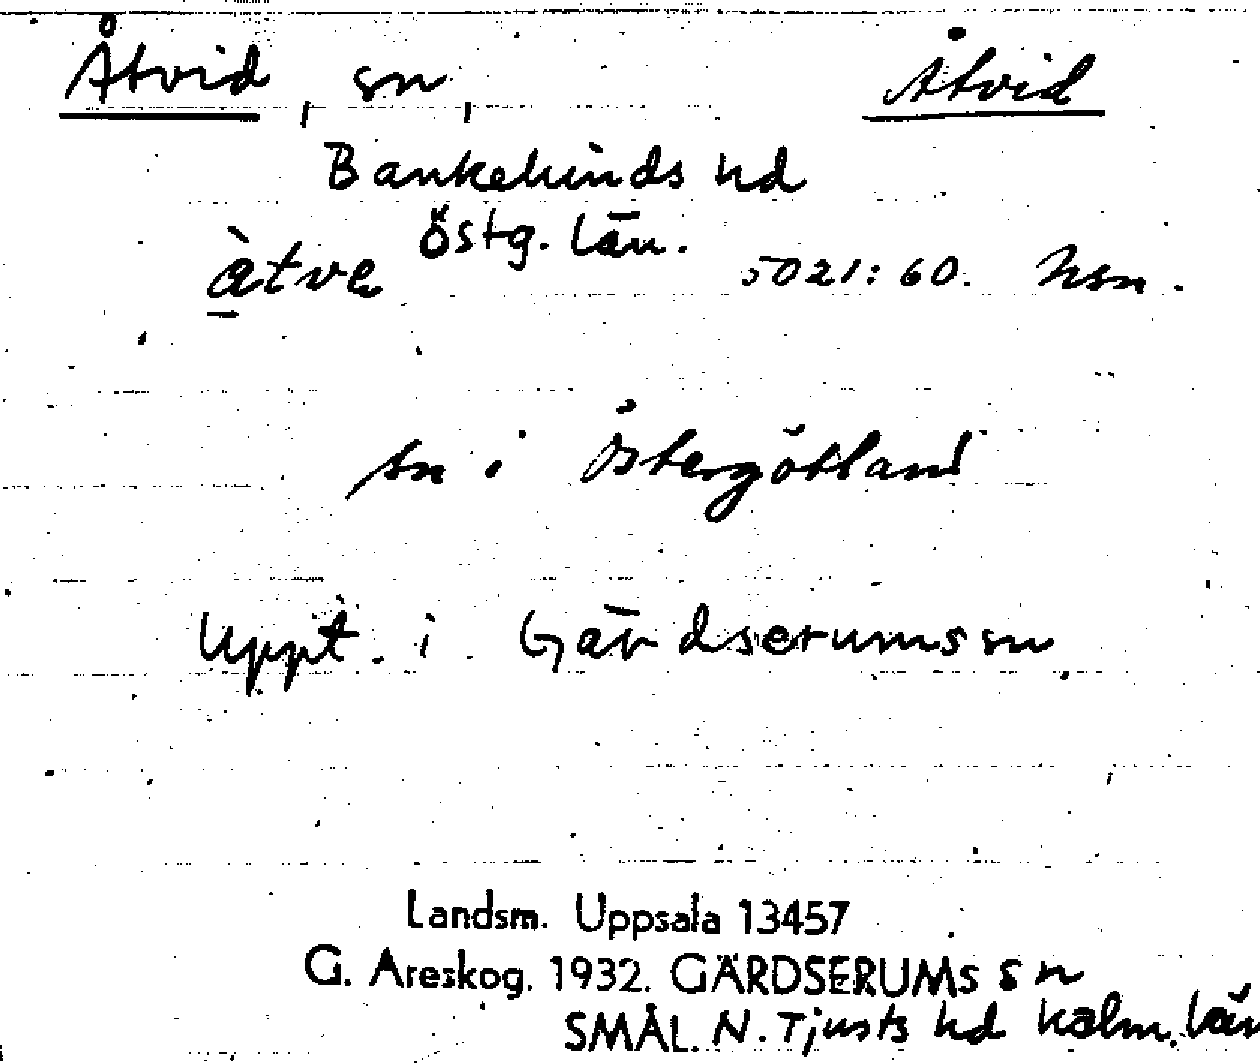 Åtvid, sn, Åtvid
Bankekinds hd
Östg. län.
åtve 5021:60. hsn.
sn i Östergötland
Uppt. i Gärdserums sn
Landsm. Uppsala 13457
G. Areskog. 1932. GÄRDSERUMS sn
SMÅL. N. Tjusts hd Kalm. län